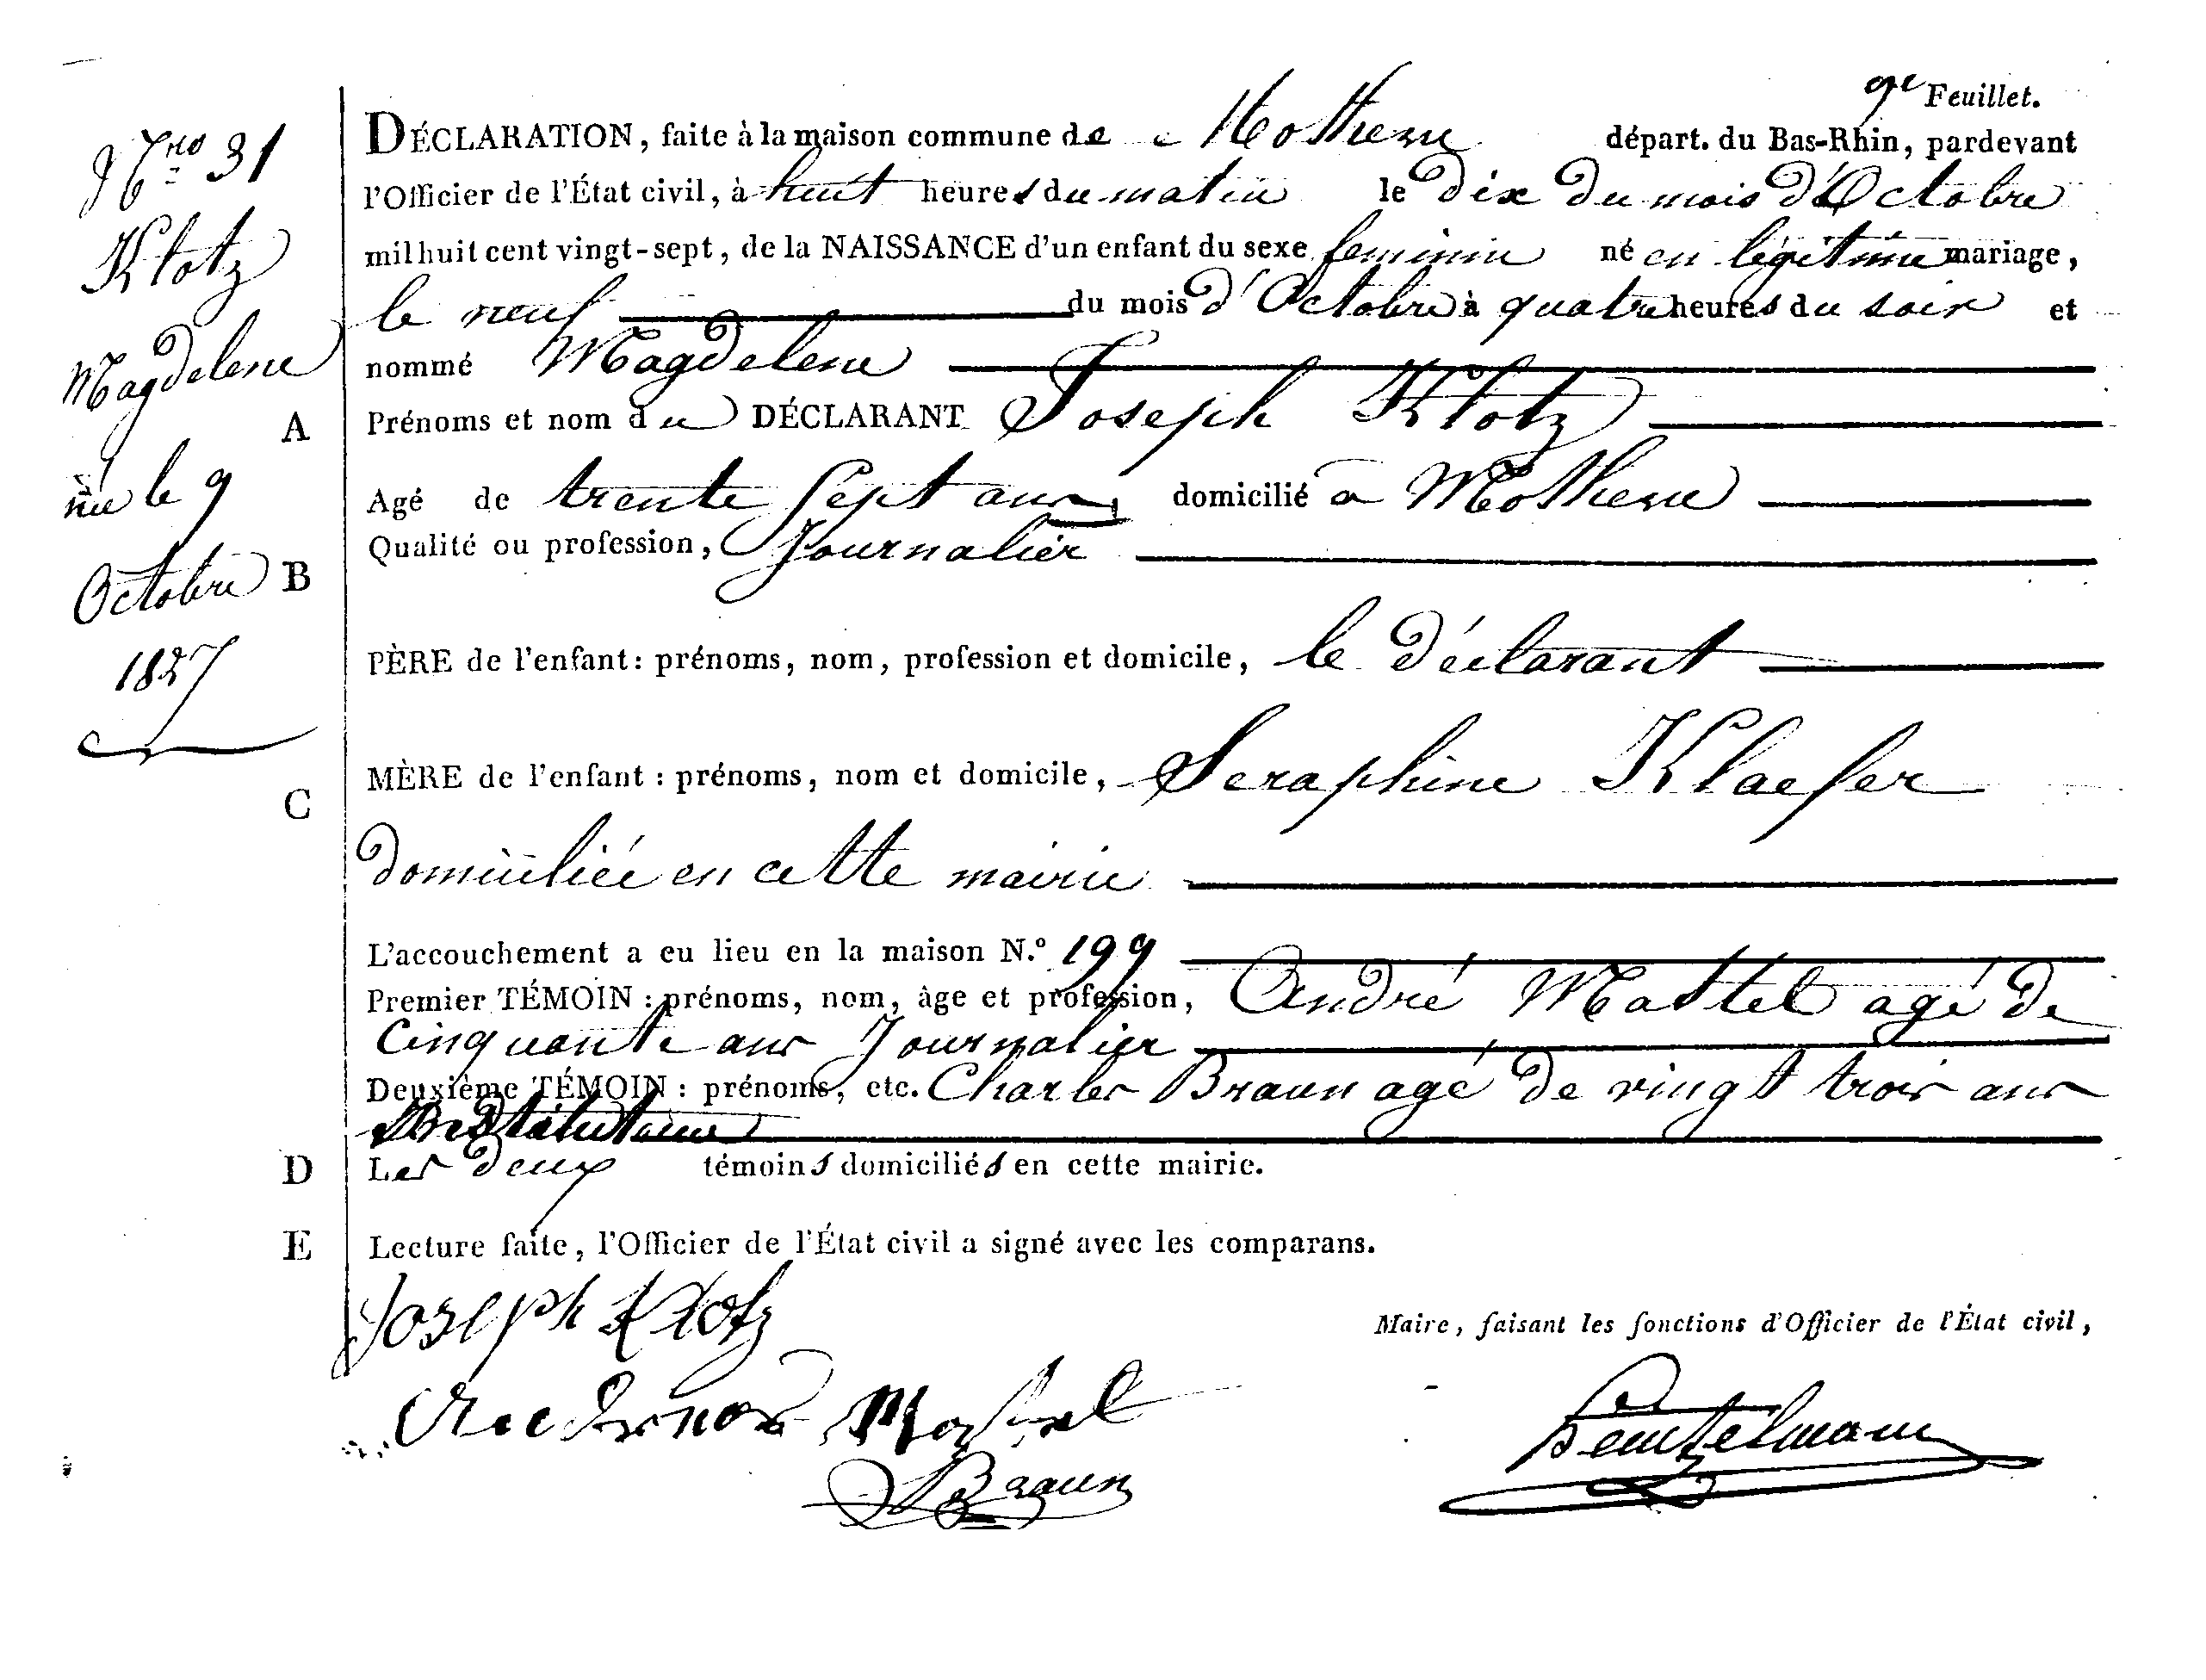 9e Feuillet.
Nro 31
Klotz
Magdelene
née le 9
Octobre
1827
DÉCLARATION, faite à la maison commune de Mothern départ. du Bas-Rhin, pardevant
l'Officier de l'État civil, à huit heures du matin le dix du mois d'Octobre
mil huit cent vingt-sept, de la NAISSANCE d'un enfant du sexe feminin né en légitime mariage,
le neuf du mois d'Octobre à quatre heures du soir et
nommé Magdelene
A Prénoms et nom du DÉCLARANT Joseph Klotz
Agé de trente sept ans, domicilié à Mothern
B Qualité ou profession, Journalier
PÈRE de l'enfant: prénoms, nom, profession et domicile, le déclarant
C MÈRE de l'enfant : prénoms, nom et domicile, Seraphine Klaefer
domiciliée en cette mairie
L'accouchement a eu lieu en la maison N.° 199
Premier TÉMOIN : prénoms, nom, âge et profession, André Mattel agé de
Cinquante ans Journalier
Deuxième TÉMOIN : prénoms, etc. Charles Braun agé de vingt trois ans
D Les deux témoins domiciliés en cette mairie.
E Lecture faite, l'Officier de l'État civil a signé avec les comparans.
Joseph Klotz
Maire, faisant les fonctions d'Officier de l'État civil,
Braun